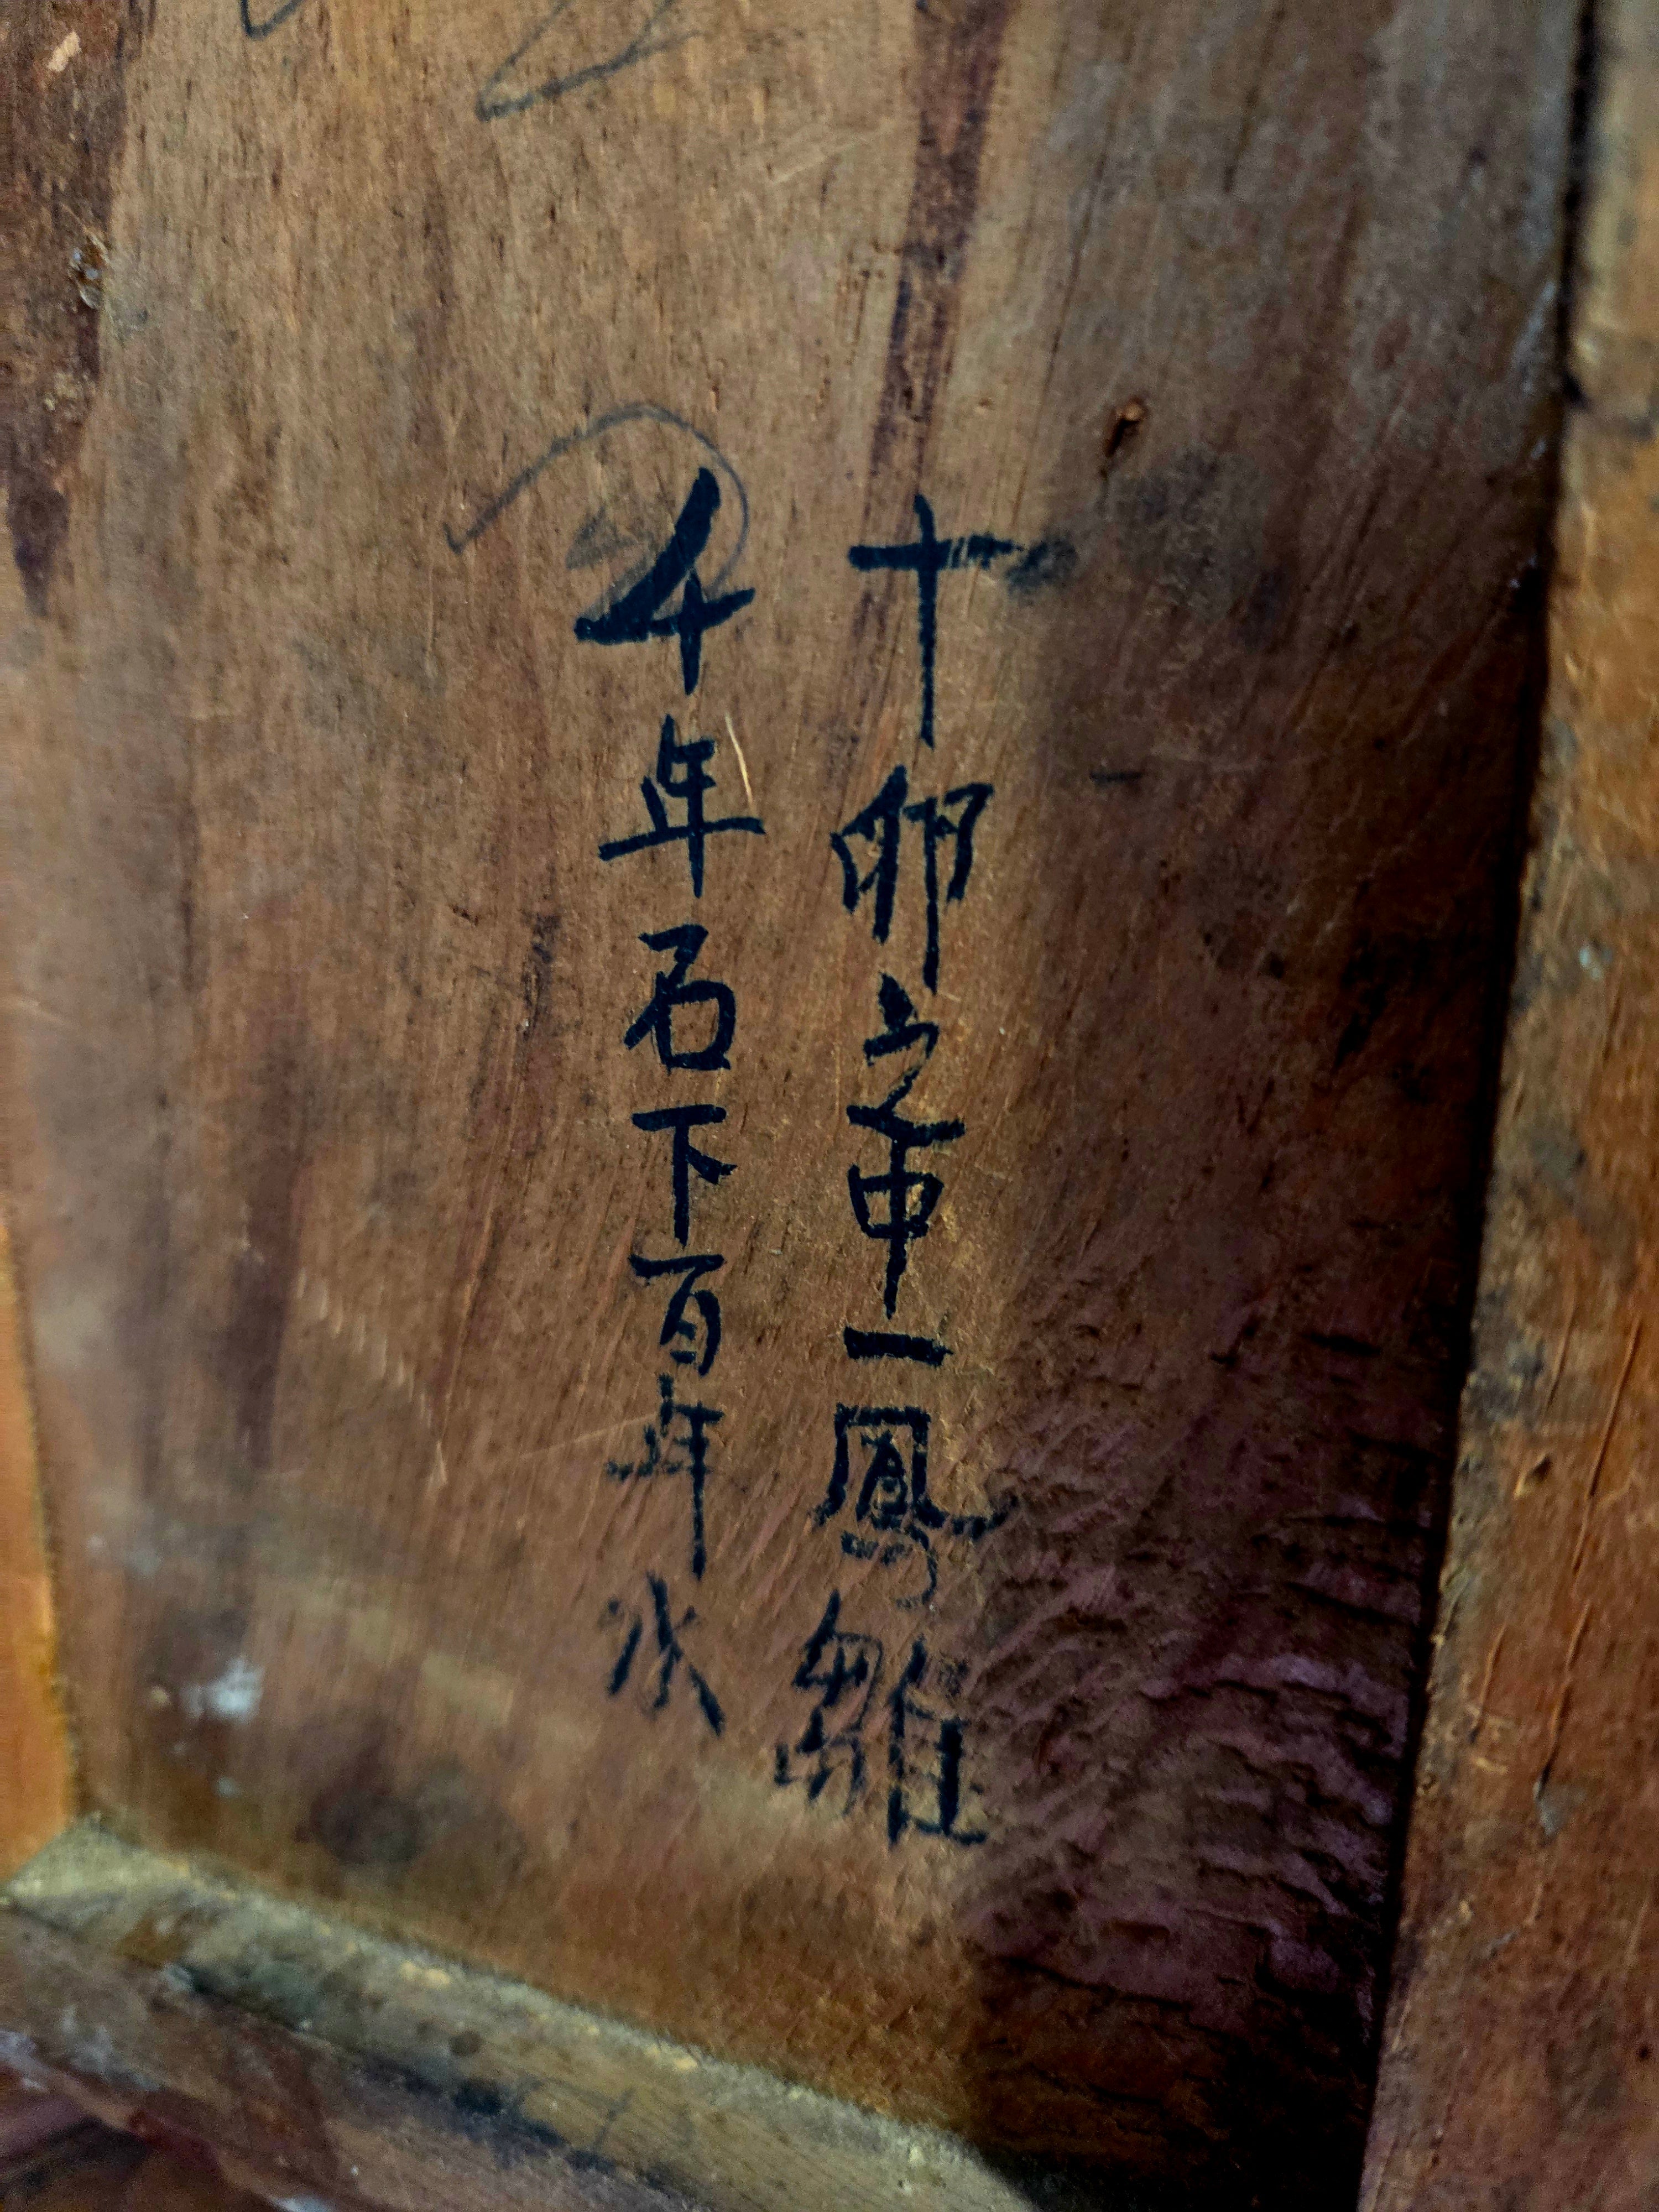 十卵之中一鳳雛
千年石下百年水